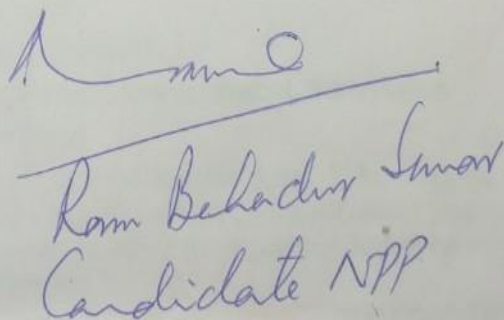 Ram Bahadur Sunar
Candidate NPP